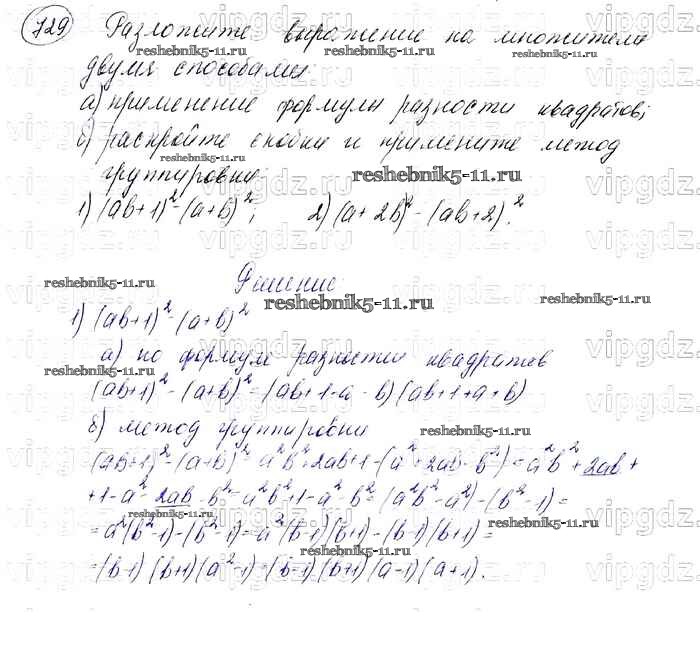 729 Разложите выражение на множители
двумя способами:
а) применение формулы разности квадратов;
б) раскройте скобки и примените метод
группировки:
1) (ab+1)²-(a+b)²; 2) (a+2b)²-(ab+2)².
Решение:
1) (ab+1)² (a+b)²
а) по формуле разности квадратов
(ab+1)²-(a+b)²=(ab+1-a-b)(ab+1+a+b)
б) метод группировки
(ab+1)²-(a+b)²=a²b²+2ab+1-(a²+2ab+b²)=a²b²+2ab+
+1-a²-2ab-b²=a²b²+1-a²-b²=(a²b²-a²)-(b²-1)=
=a²(b²-1)-(b²-1)=a²(b-1)(b+1)-(b-1)(b+1)=
=(b-1)(b+1)(a²-1)=(b-1)(b+1)(a-1)(a+1).
reshebnik5-11.ru
vipgdz.ru